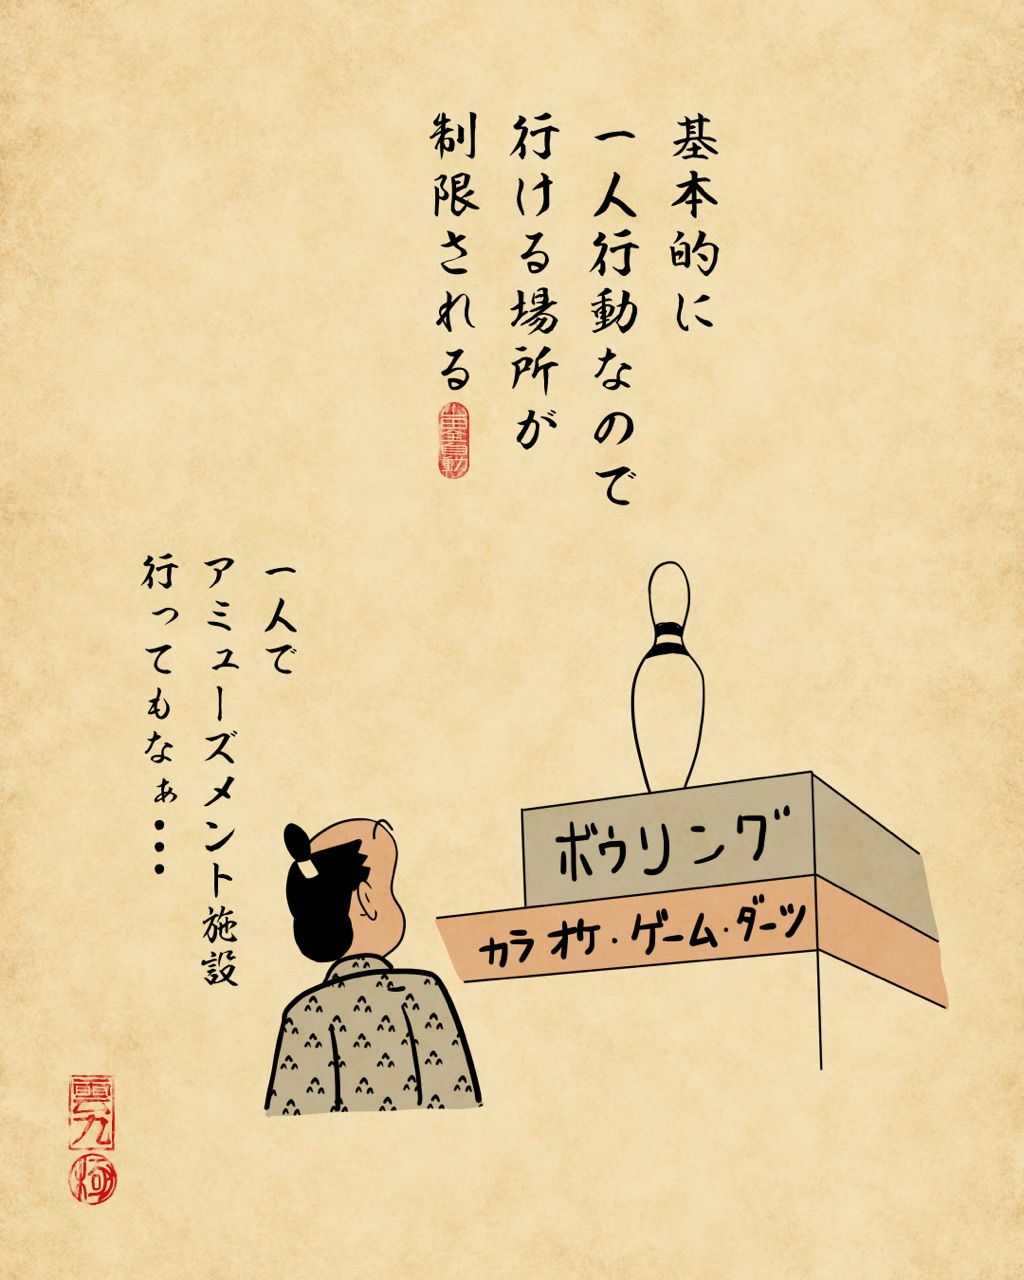 基本的に
一人行動なので
行ける場所が
制限される
一人で
アミューズメント施設
行ってもなぁ・・・
ボウリング
カラオケ・ゲーム・ダーツ